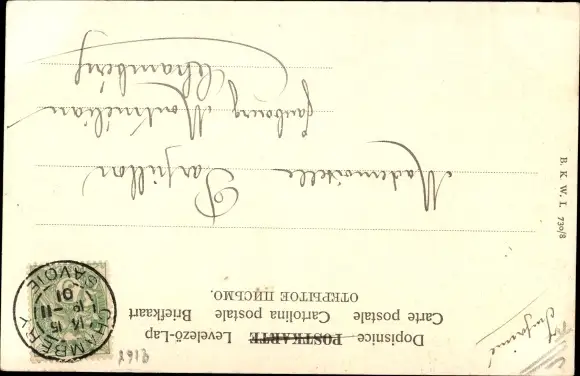 Dopisnice POSTKARTE Levelező-Lap
Carte postale Cartolina postale Briefkaart
ОТКРЫТОЕ ПИСЬМО.
CHAMBERY
14 15
11
01
SAVOIE
Imprimé
2913
Mademoiselle Papillon
faubourg Montmélian
Chambéry
B. K. W. I. 730/8